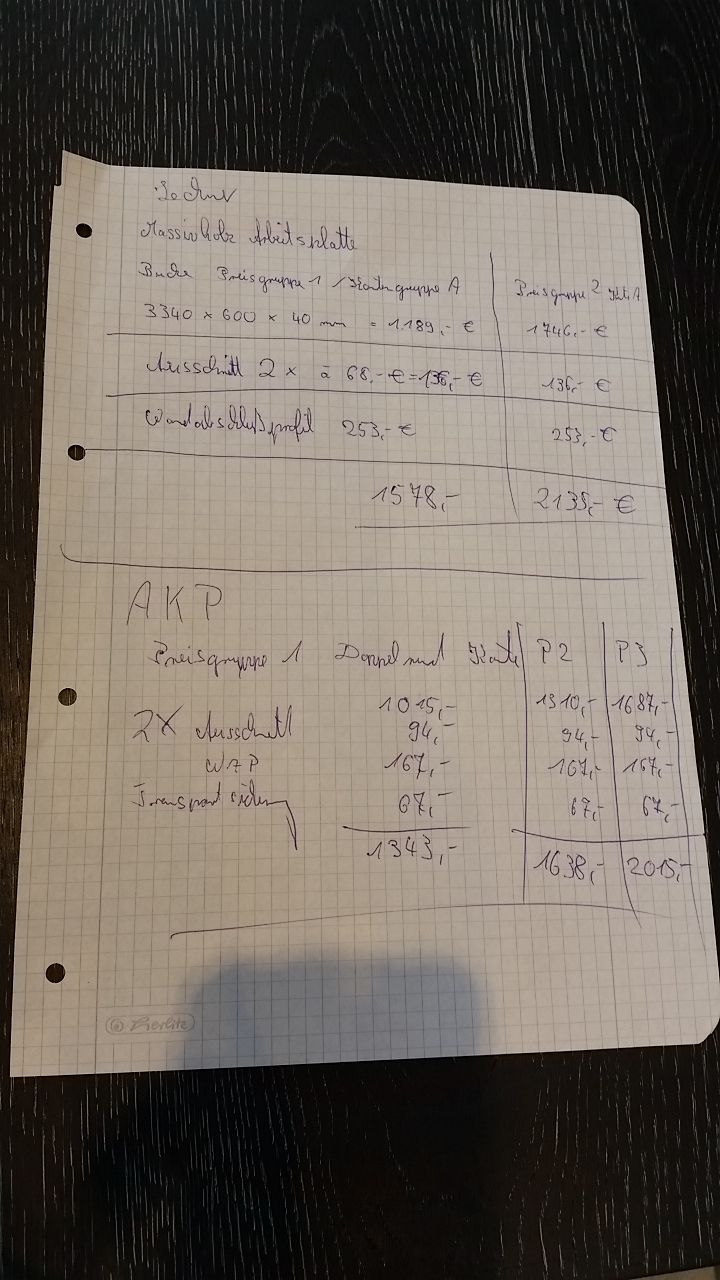 Lechner
Massivholz Arbeitsplatte
Buche Preisgruppe 1 / Kantengruppe A Preisgruppe 2 Kant A
3340 x 600 x 40 mm = 1.189,- € 1746,- €
Ausschnitt 2 x à 68,- € = 136,- € 136,- €
Wandabschlußprofil 253,- € 253,- €
1578,- 2135,- €
AKP
Preisgruppe 1 Doppelrund Kante P2 P3
1015,- 1310,- 1687,-
2X Ausschnitt 94,- 94,- 94,-
WAP 167,- 167,- 167,-
Transport 67,- 67,- 67,-
1343,- 1638,- 2015,-
Herlitz